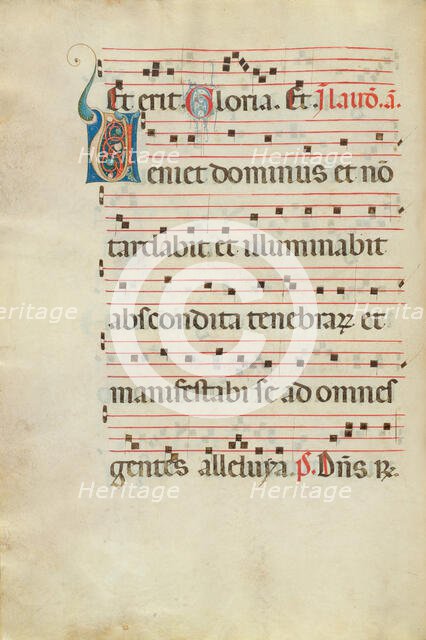 Et erit. Gloria. Et. J̃ laud̃. ã.
Veniet dominus et nõ
tardabit et illuminabit
abscondita tenebraꝝ et
manifestabi se ad omnes
gentes alleluya. P̃. Dñs ꝶ
Heritage Heritage Heritage
Heritage Heritage
Heritage Heritage Heritage
Heritage Heritage